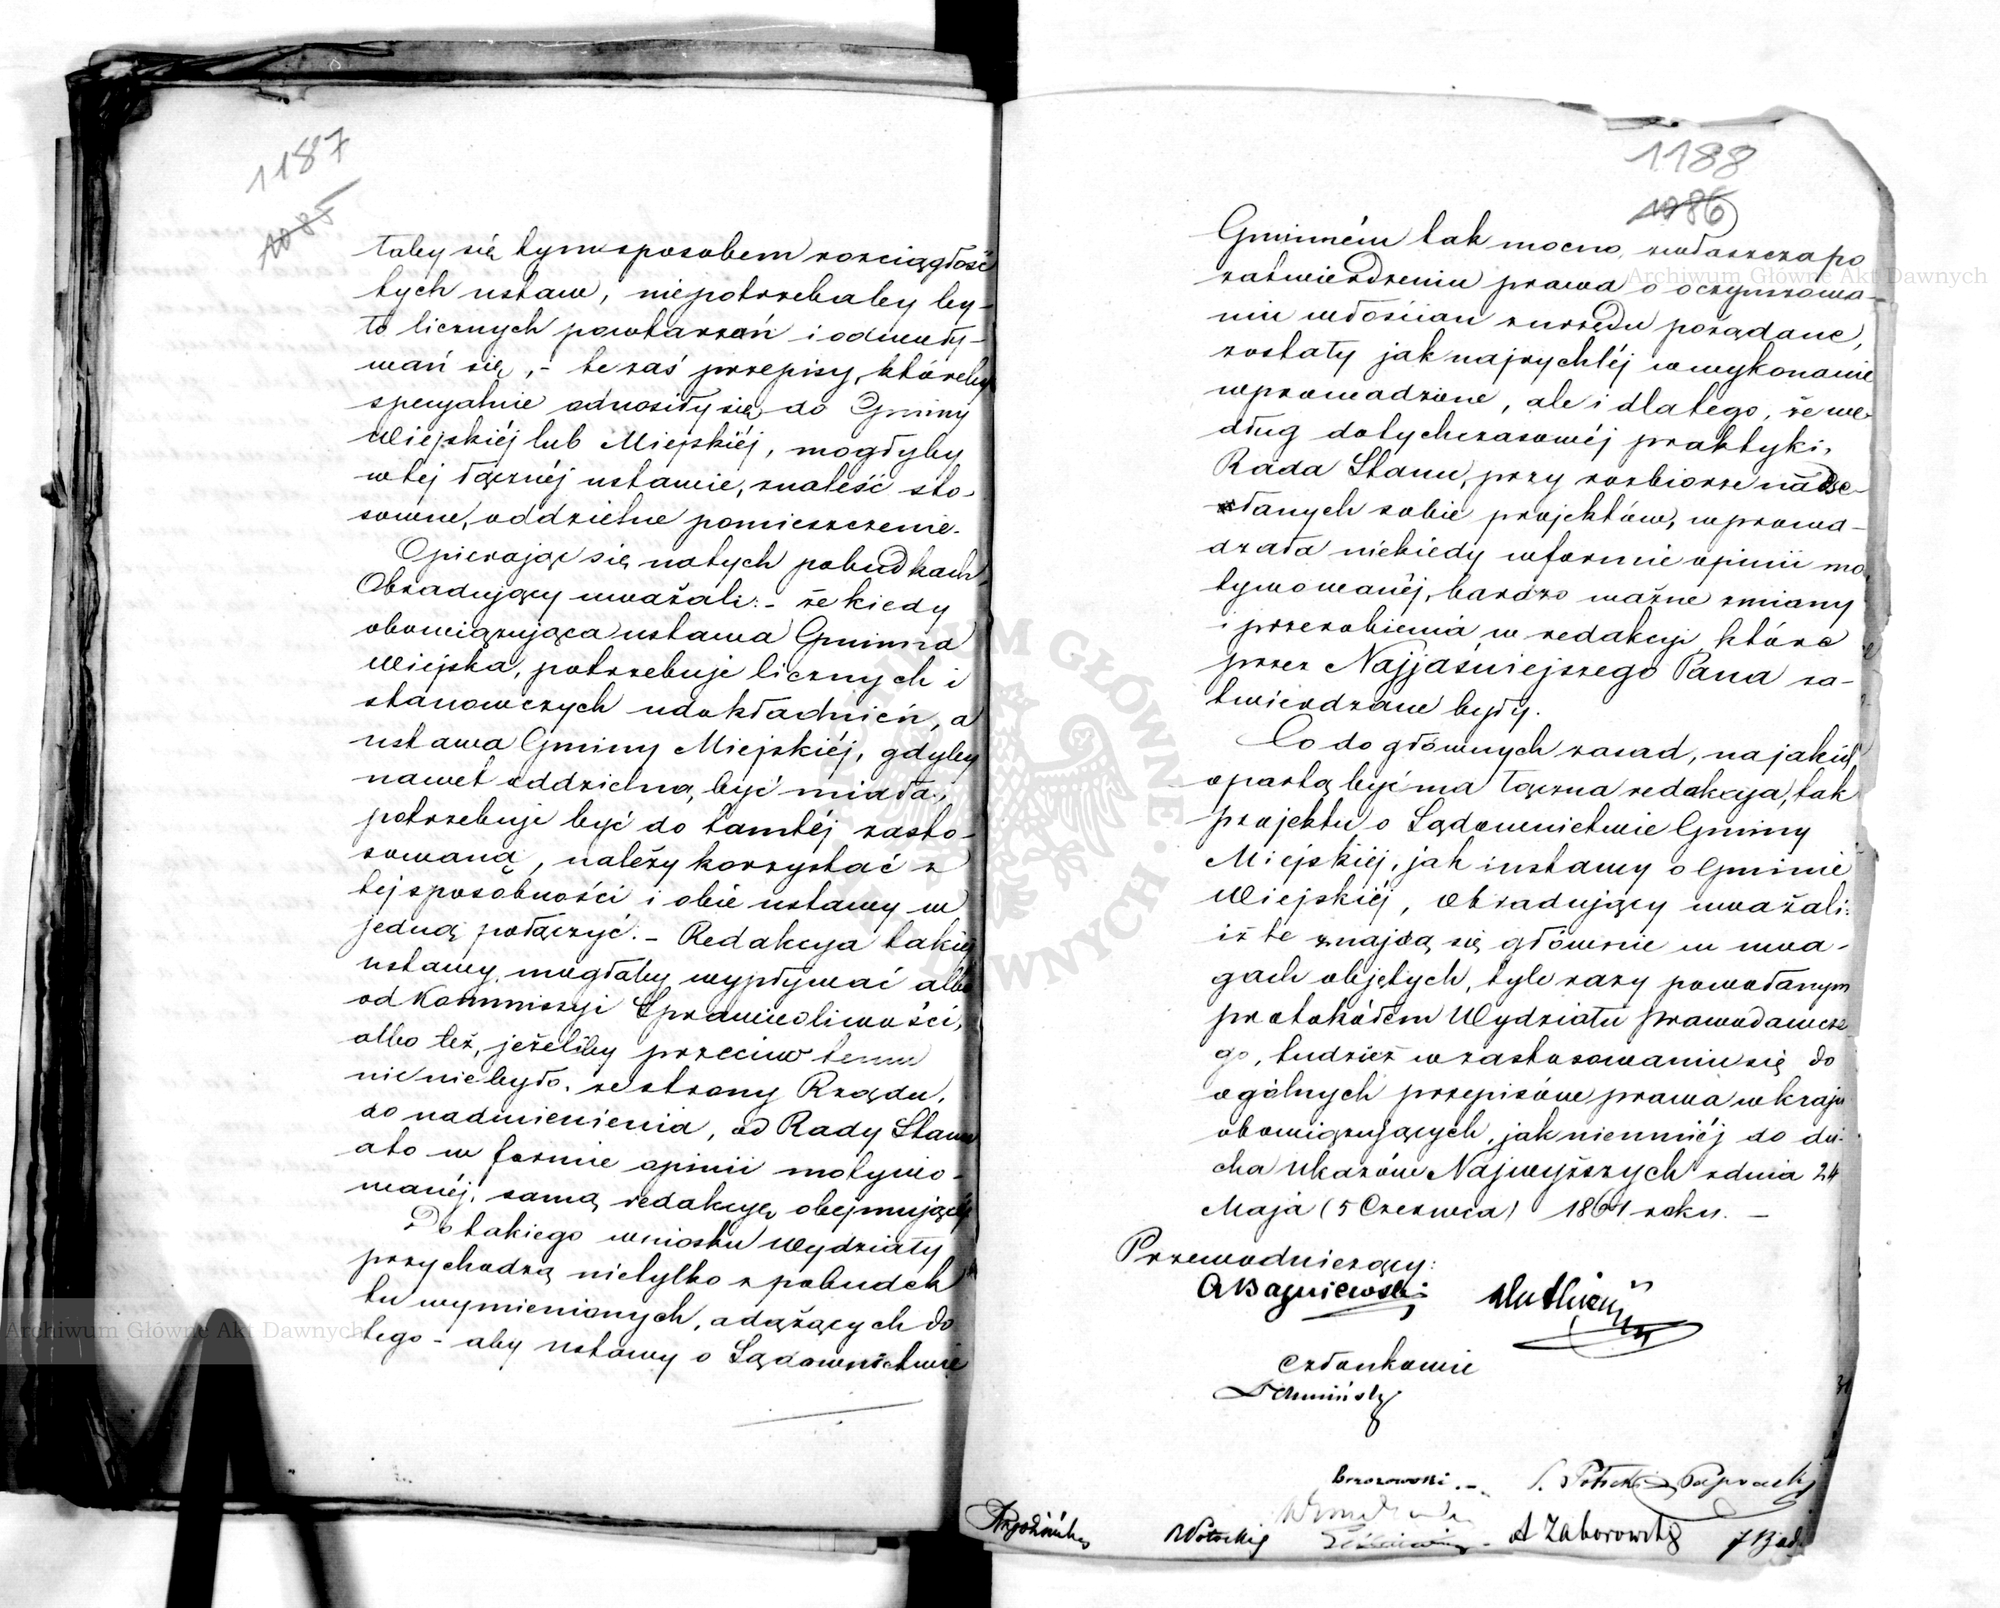 1187
1085
taby się tym sposobem rozciągłość
tych ustaw, niepotrzebaby by-
ło licznych powtarzań i odwoły-
wań się, - te zaś przepisy, któreby
specyalnie odnosiły się do Gminy
Wiejskiéj lub Miejskiéj, mogłyby
w téj łącznéj ustawie, znaleść sto-
sowne, oddzielne pomieszczenie.
Opierając się na tych pobudkach
Obradujący uważali: - że kiedy
obowiązująca ustawa Gminna
Wiejska, potrzebuje licznych i
stanowczych udokładnień, a
ustawa Gminy Miejskiéj, gdyby
nawet oddzielną być miała,
potrzebuje być do tamtéj zasto-
sowaną, należy korzystać z
téj sposobności i obie ustawy w
jedną połączyć. - Redakcya takiéj
ustawy mogłaby wypływać albo
od Kommissyi Sprawiedliwości,
albo też, jeżeliby przeciw temu
nic nie było, ze strony Rządu,
do nadmienienia, od Rady Stanu
a to w formie opinii motywo-
wanéj, samą redakcyę obejmującéj
Do takiego wniosku Wydziały
przychodzą nietylko z pobudek
tu wymienionych, a dążących do
tego - aby ustawy o Sądownictwie
1188
1086
Gminném tak mocno, zwłaszcza po
zatwierdzeniu prawa o oczynszowa-
niu włościan z urzędu pożądane,
zostały jak najrychléj w wykonanie
wprowadzone, ale i dla tego, że we-
dług dotychczasowéj praktyki,
Rada Stanu, przy rozbiorze nade-
słanych sobie projektów, wprowa-
dzała niekiedy w formie opinii mo-
tywowanéj, bardzo ważne zmiany
i przerobienia w redakcyi, które
przez Najjaśniejszego Pana za-
twierdzane były.
Co do głównych zasad, na jakich
opartą być ma łączna redakcja, tak
projektu o Sądownictwie Gminy
Miejskiéj, jak i ustawy o Gminie
Wiejskiéj, Obradujący uważali:
iż te znajdą się głównie w uwa-
gach objętych, tyle razy powołanym
protokółem Wydziału Prawodawcze-
go, tudzież w zastosowaniu się do
ogólnych przepisów prawa w kraju
obowiązujących, jak niemniéj do du-
cha Ukazów Najwyższych z dnia 24
Maja (5 Czerwca) 1861 roku. -
Przewodniczący:
Członkowie
Brzozowski
S. Potocki Paprocki
A Zaborowski
Archiwum Główne Akt Dawnych
Archiwum Główne Akt Dawnych
ARCHIWUM GŁÓWNE AKT DAWNYCH